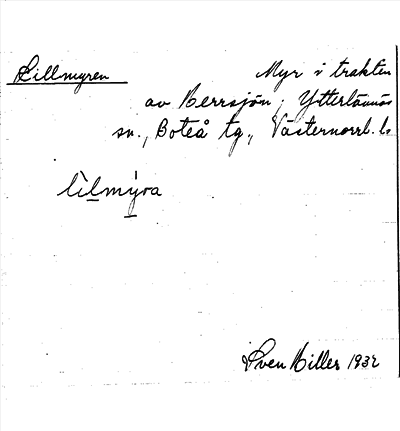 Lillmyren Myr i trakten
av Herrsjön, Ytterlännäs
sn., Boteå tg., Västernorrl. l.
lìlmýra
Sven Hiller 1932